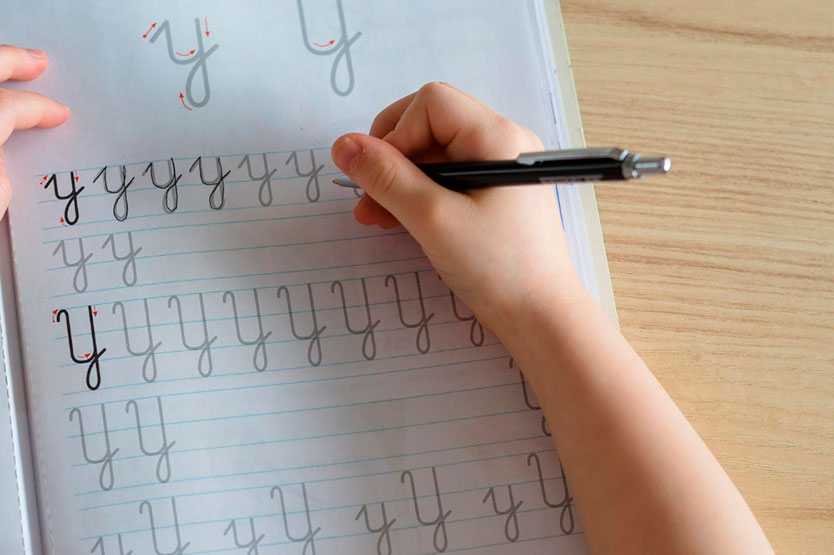 y Y
y y y y y y
y y
Y Y Y Y Y Y Y Y
Y Y
y Y y Y y Y y Y